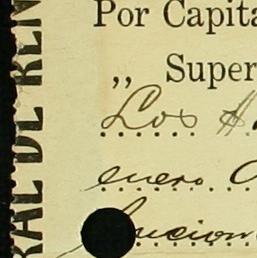 Por Capita
„ Super
Los H
enero
ucion
RAL DE REN